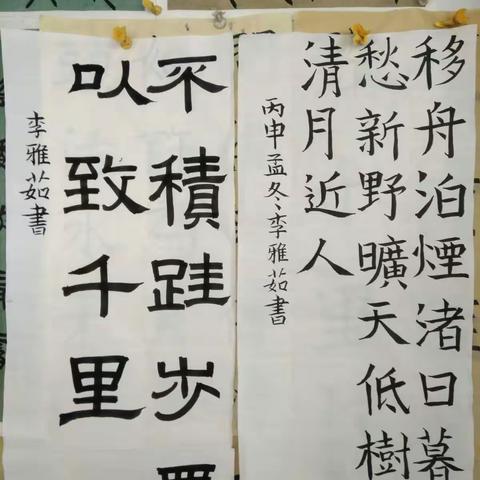 移舟泊煙渚日暮
愁新野曠天低樹
清月近人
丙申孟冬李雅茹書
不積跬步
以致千里
李雅茹書